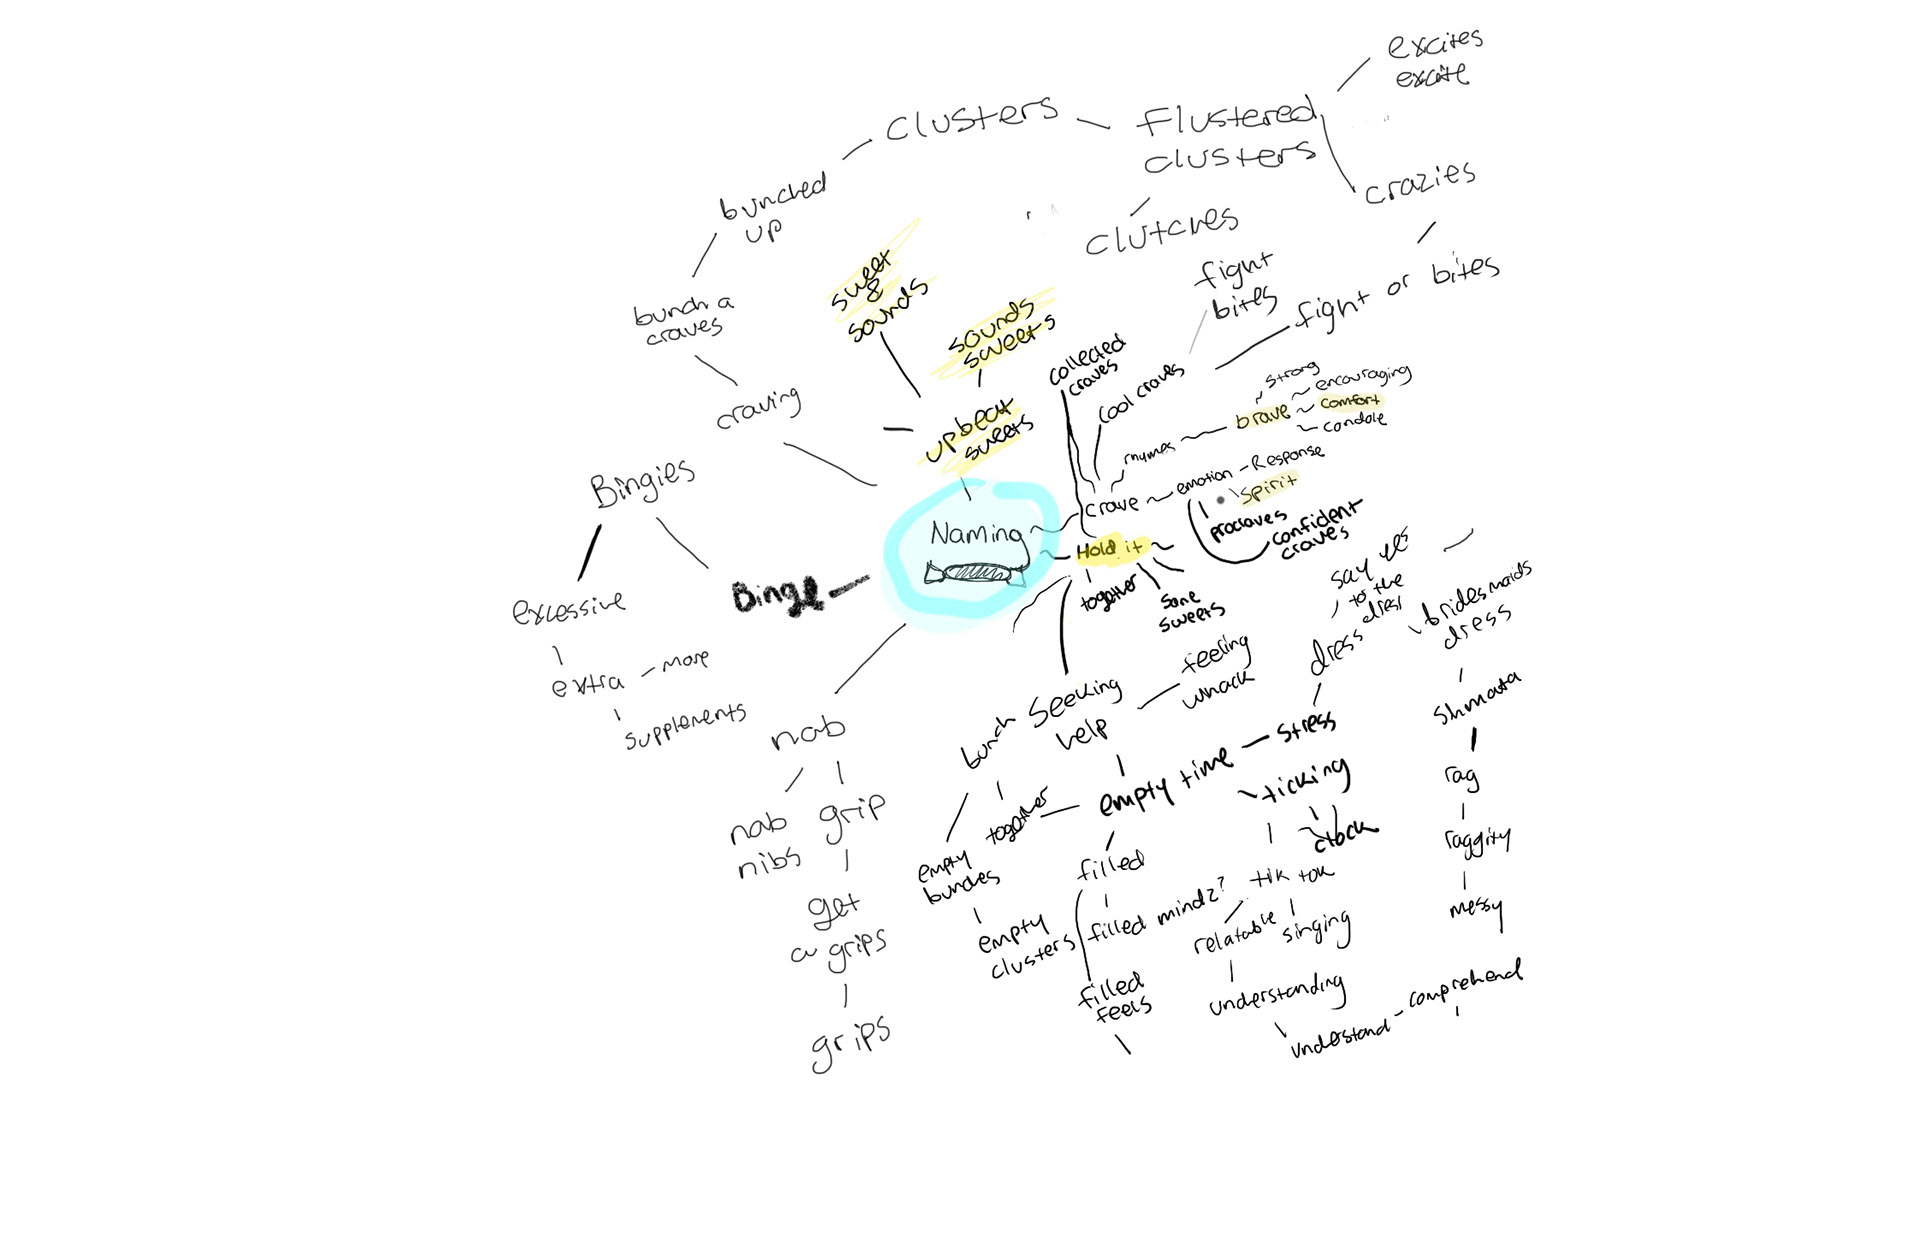 excites
excite
Clusters
Flustered
clusters
crazies
bunched
up
clutches
sweet
&
sounds
fight
bites
fight or bites
bunch a
craves
sounds
sweets
collected
craves
cool craves
craving
upbeat
sweets
strong
encouraging
brave
comfort
condole
rhymes
Bingies
crave
emotion
Response
spirit
procraves
confident
craves
Naming
Hold it
together
Sane
sweets
Binge
excessive
extra
more
supplements
say yes
to the
dress
dress
bridesmaids
dress
feeling
whack
Seeking
help
bunch
together
nab
nab
nibs
grip
get
a grips
grips
empty time
stress
ticking
clock
shmata
rag
raggity
messy
empty
bunches
empty
clusters
filled
filled mindz?
filled
feels
tik tok
relatable
singing
understanding
understand
comprehend